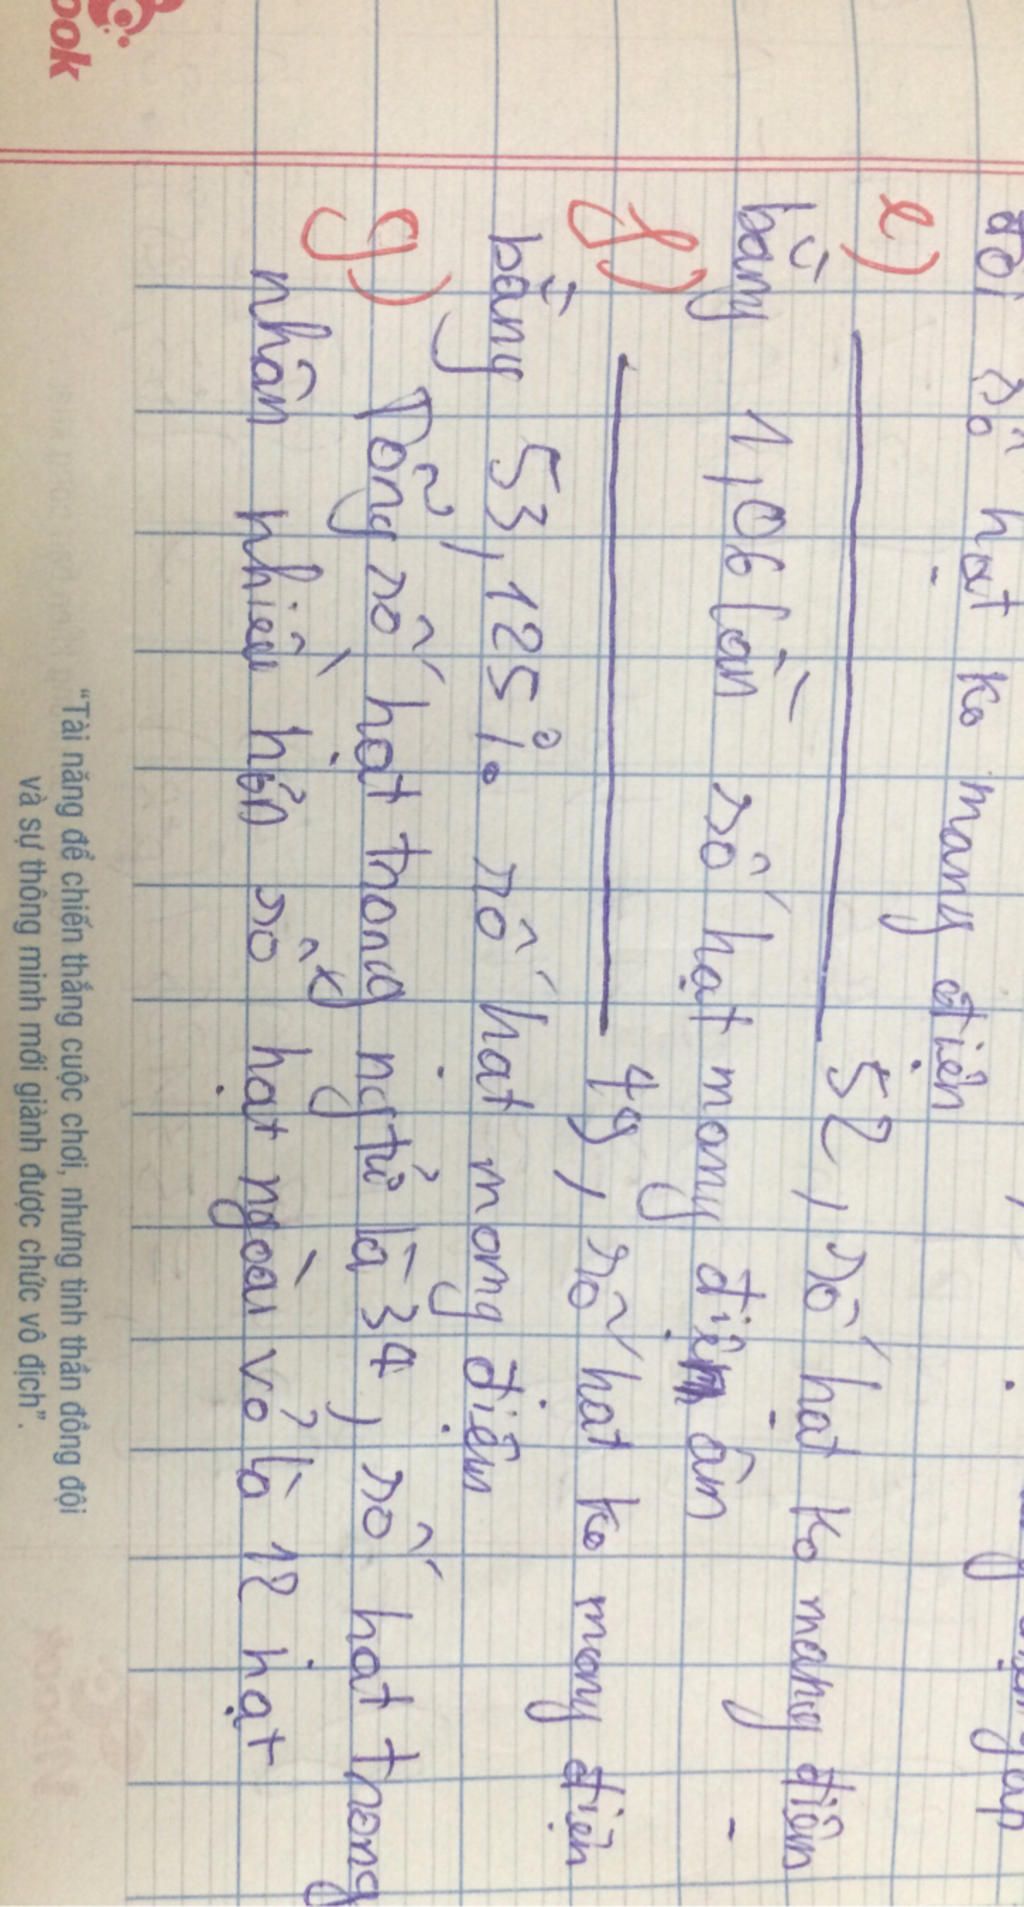 đôi số hạt ko mang điện
e) ——— 52, số hạt ko mang điện
bằng 1,06 lần số hạt mang điện âm
f) ——— 49, số hạt ko mang điện
bằng 53,125% số hạt mang điện
g) Tổng số hạt trong ngtử là 34, số hạt trong
nhân nhiều hơn số hạt ngoài vỏ là 12 hạt
"Tài năng để chiến thắng cuộc chơi, nhưng tinh thần đồng đội
và sự thông minh mới giành được chức vô địch".
ook